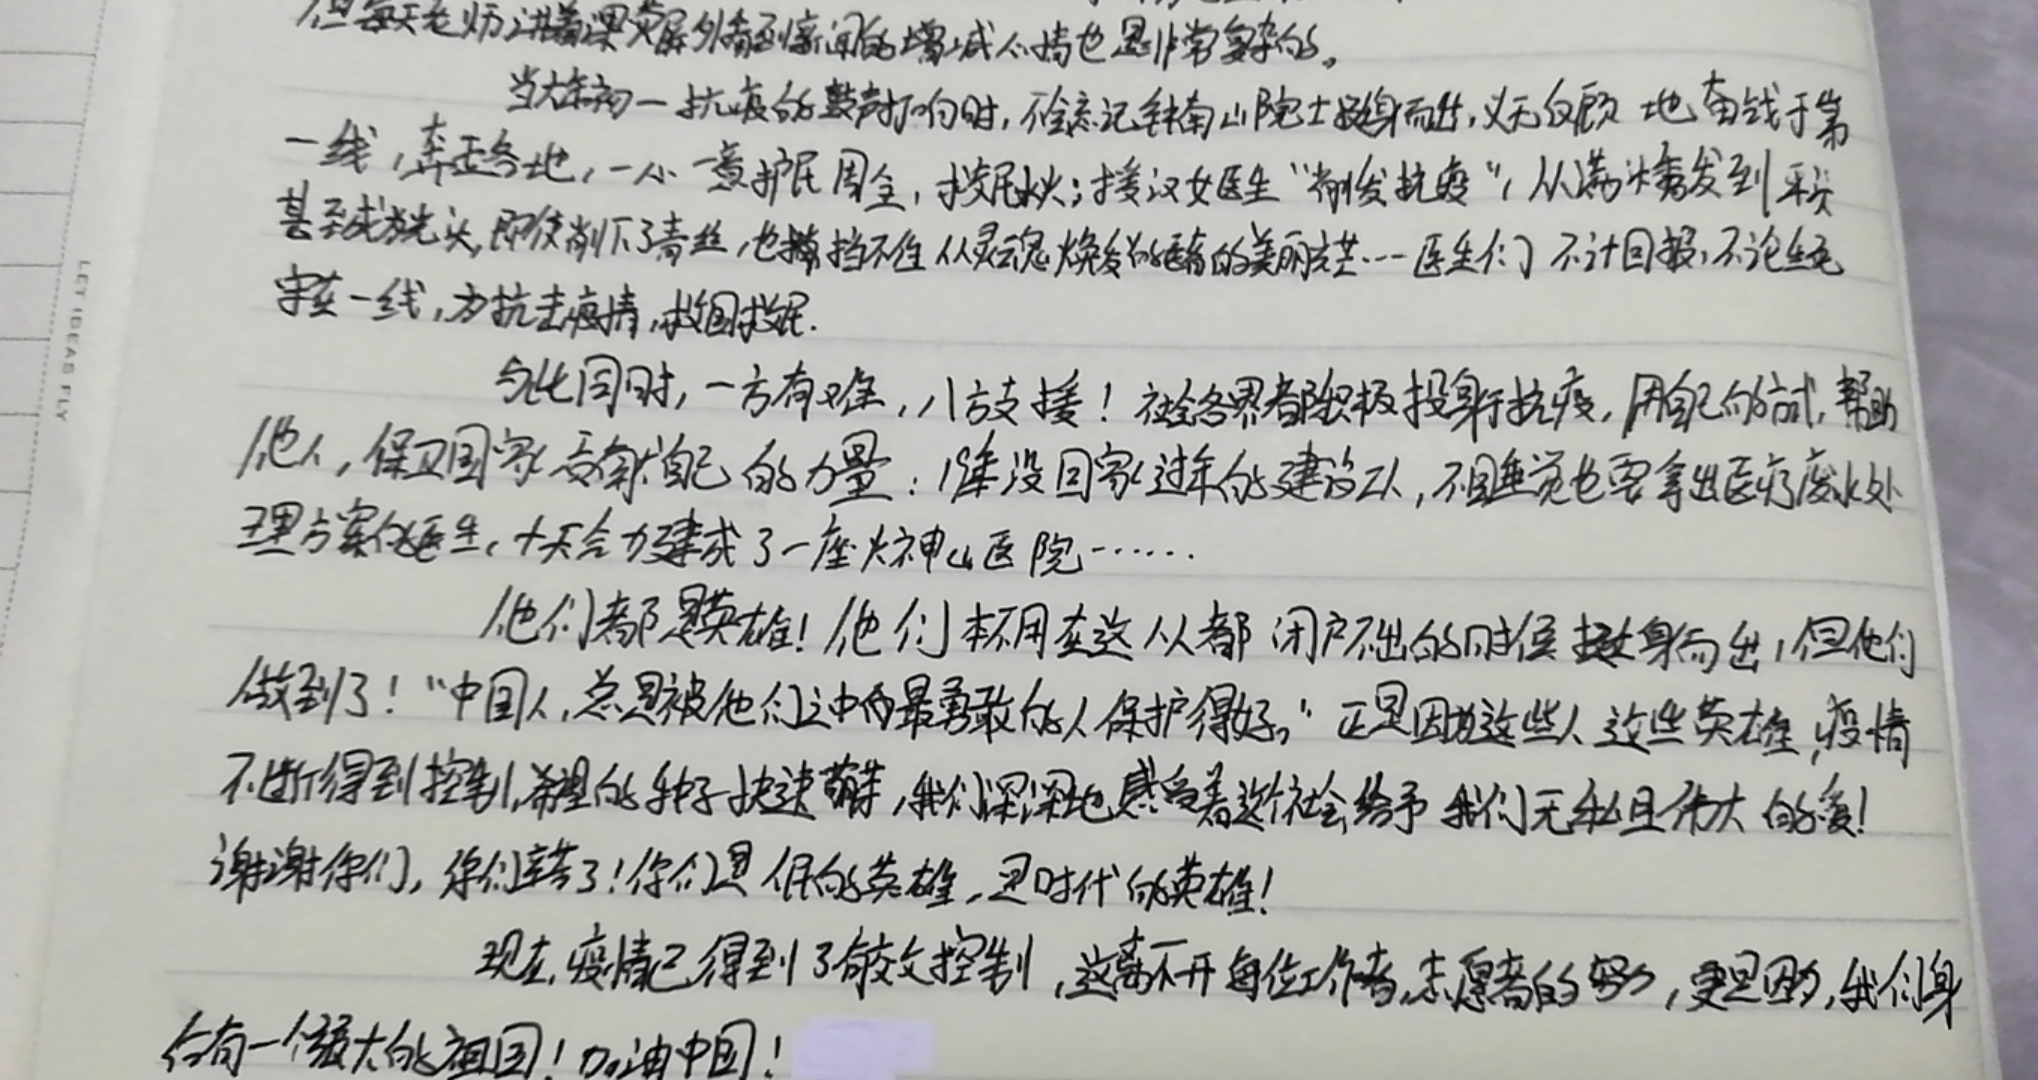 但每天老师讲着课荧屏外看到新闻的增减心情也是非常复杂的。
当大年初一抗疫的鼓声打响时,不会忘记钟南山院士挺身而出,义无反顾地奋战于第
一线,奔走各地,一心一意护民周全,救民水火;援汉女医生“削发抗疫”,从满头秀发到平头
甚至成为光头,即使削下了青丝,也挡不住从灵魂焕发的美丽光芒……医生们不计回报,不论生死
守在一线,为抗击疫情,救国救民.
与此同时,一方有难,八方支援!社会各界都积极投身于抗疫,用自己的方式,帮助
他人,保卫国家贡献自己的力量:1年没回家过年的建设工人,不睡觉也要拿出医疗废水处
理方案的医生,十天合力建成了一座火神山医院……
他们都是英雄!他们本不用在这人人都闭户不出的时候挺身而出,但他们
做到了!“中国人,总是被他们之中的最勇敢的人保护得好。”正是因为这些人这些英雄,疫情
不断得到控制,希望的种子快速萌芽,我们深深地感受着这个社会给予我们无私且伟大的爱!
谢谢你们,你们辛苦了!你们是人民的英雄,是时代的英雄!
现在,疫情已得到了有效控制,这离不开每位工作者,志愿者的努力,更是因为,我们身
后有一个强大的祖国!加油中国!
LET IDEAS FLY